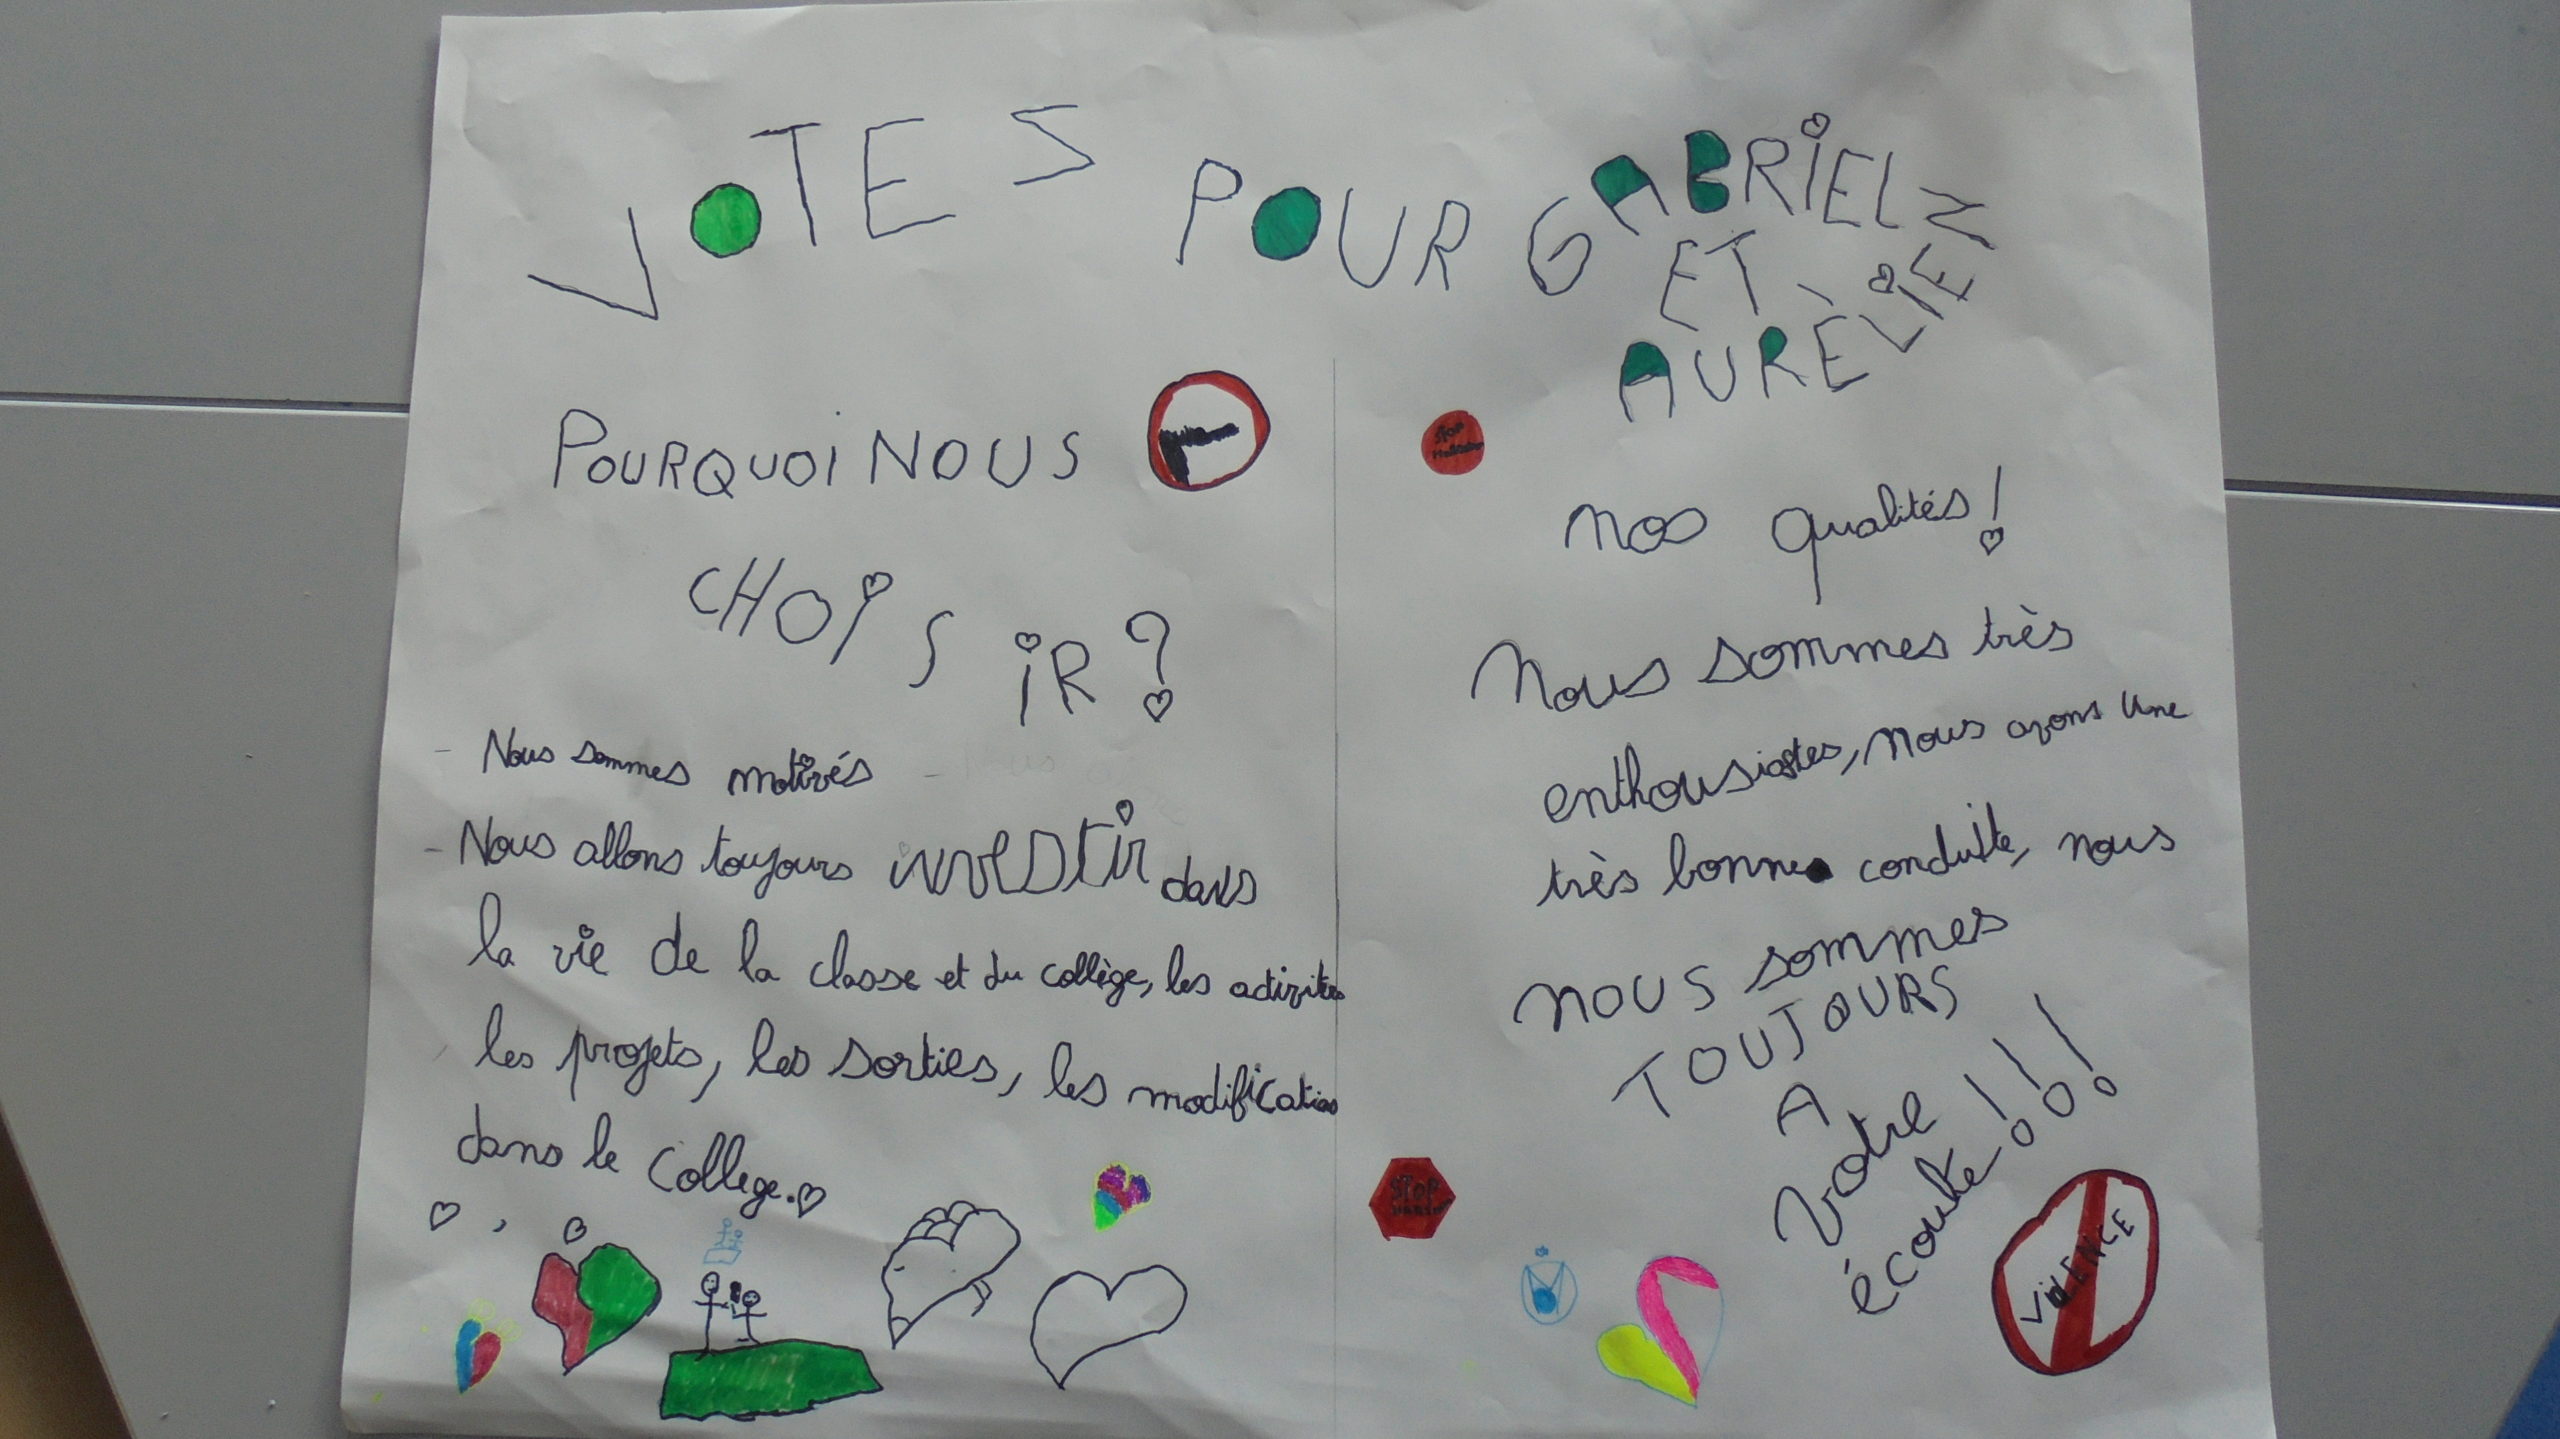 VOTES POUR GABRIEL
ET
AURÈLIEN
POURQUOI NOUS
CHOISIR ?
- Nous sommes motivés
- Nous allons toujours investir dans
la vie de la classe et du collège, les activités
les projets, les sorties, les modification
dans le College.
STOP
nos qualités !
Nous sommes très
enthousiastes, nous avons une
très bonne conduite, nous
nous sommes
TOUJOURS
A
votre
écoute !!!
STOP
VIOLENCE